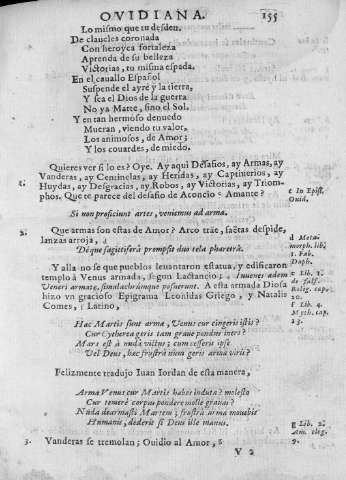 OVIDIANA. 155
Lo mismo que tu desden.
De claueles coronada
Con heroyca fortaleza
Aprenda de su belleza
Victorias, tu misma espada.
En el cauallo Español
Suspende el ayre y la tierra,
Y sea el Dios de la guerra
No ya Marte, sino el Sol.
Y en tan hermoso denuedo
Mueran, viendo tu valor,
Los animosos, de Amor;
Y los couardes, de miedo.
Quieres ver si lo es? Oye. Ay aqui Desafios, ay Armas, ay
Vanderas, ay Centinelas, ay Heridas, ay Captiuerios, ay
Huydas, ay Desgracias, ay Robos, ay Victorias, ay Triom-
phos. Que te parece del desafio de Aconcio c Amante?
c In Epist.
Ouid.
Si non proficiunt artes, veniemus ad arma.
2. Que armas son estas de Amor? Arco trae, saetas despide,
lanzas arroja, d
Deque sagittifera prompsit duo tela pharetra.
d Meta-
morph. lib.
1. Fab.
Daph.
Y alla no se que pueblos leuantaron estatua, y edificaron
templo à Venus armada, segun Lactancio: e Iuuenes adem
Veneri armatæ, simulachrùmque posuerunt. A esta armada Diosa
hizo vn gracioso Epigrama Leonidas Griego, y Natalis
Comes, f Latino,
e Lib. 1.
de fals.
Relig. cap.
20.
f Lib. 4.
Myth. cap.
13.
Hac Martis sunt arma, Venus cur cingeris istis?
Cur Cytherea geris tam graue pondus iners?
Mars est à nuda victus; cum cesserit ipse
Vel Deus, hac frustrà num geris arma viris?
Felizmente tradujo Iuan Iordan de esta manera,
Arma Venus cur Martis habes induta? molesto
Cur temerè corpus pondere molle grauas?
Nuda dearmasti Martem; frustrà arma mouebis
Humanis, dederis si Deus ille manus.
3. Vanderas se tremolan; Ouidio al Amor, g
g Lib. 2.
Am. eleg.
9.
V 2